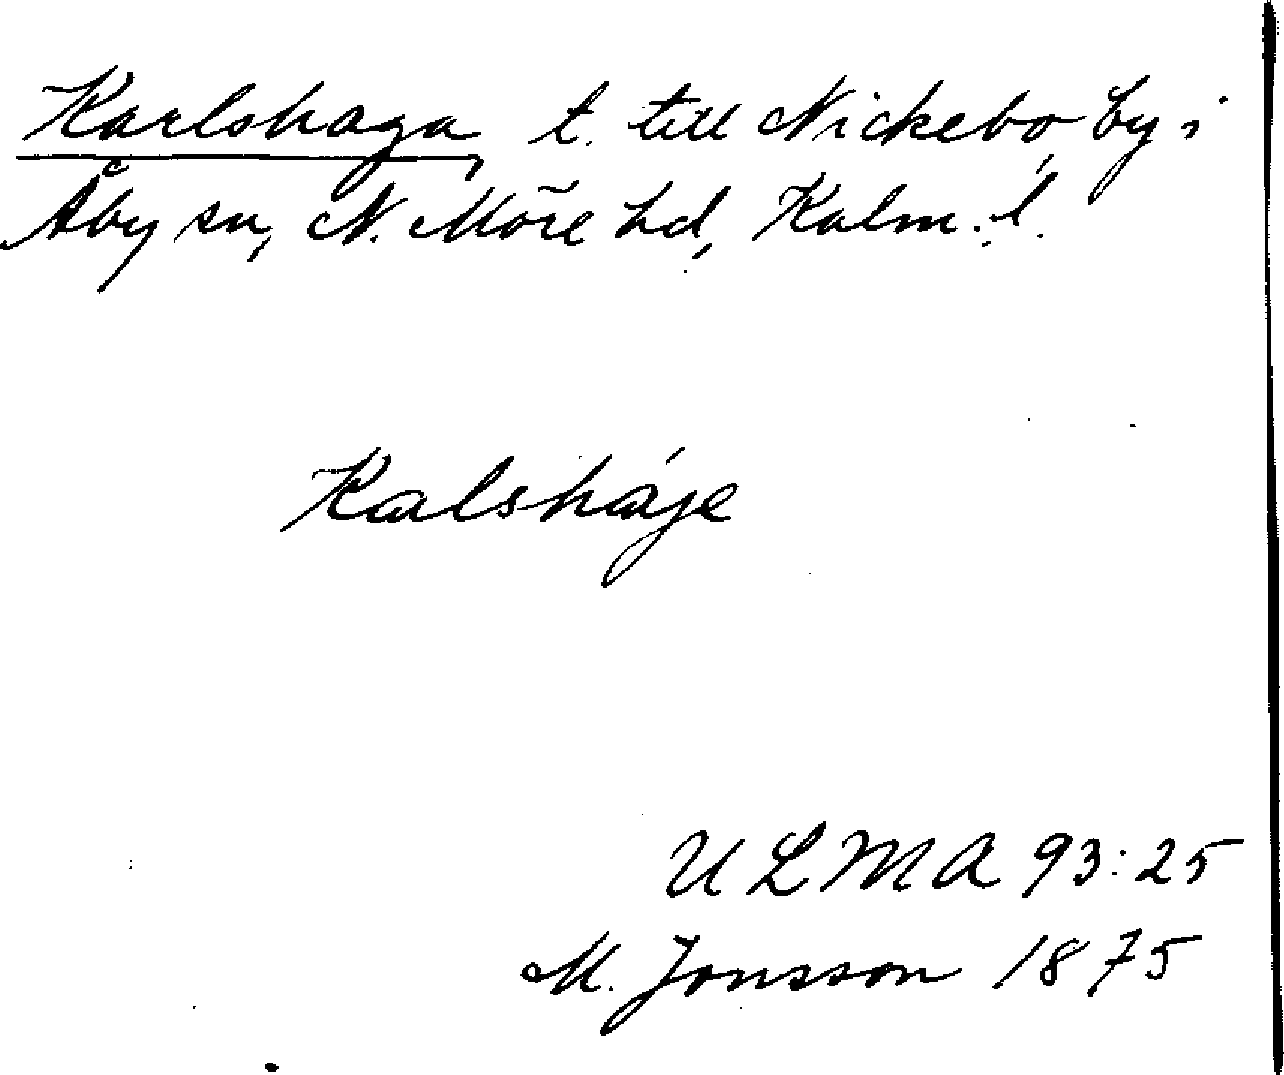 Karlshaga, t. till Nickebo, by i
Åby sn, N. Möre hd, Kalm. l.
Kalsháje
ULMA 93:25
M. Jonsson 1875